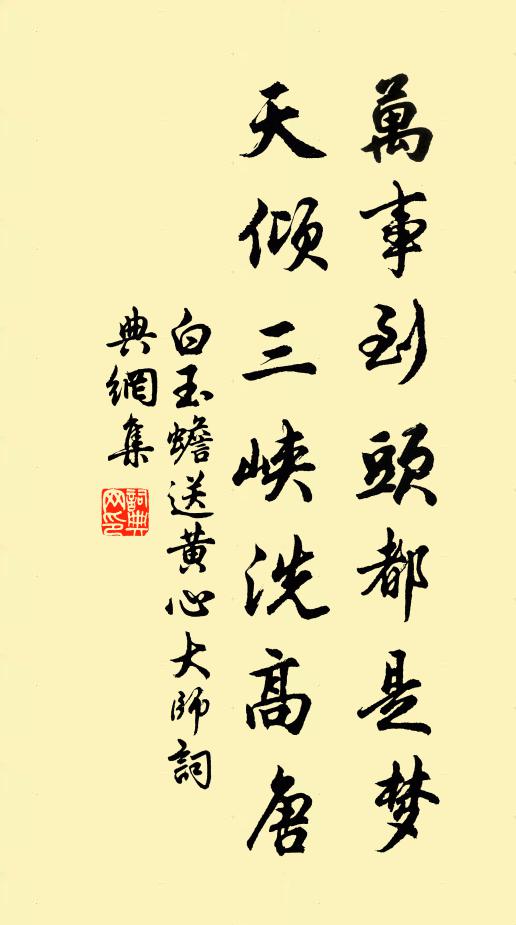 萬事到頭都是梦
天傾三峽洗高唐
白玉蟾送黄心大師詞
典網集
詞典
网印